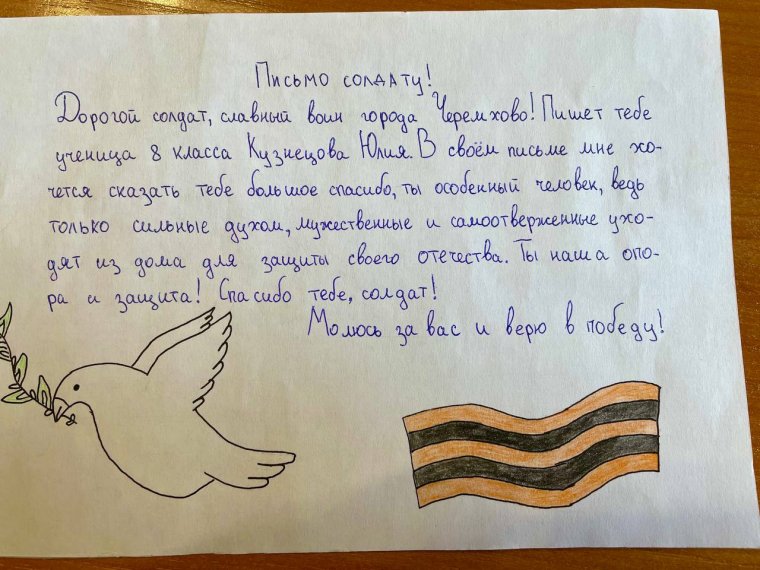 Письмо солдату!
Дорогой солдат, славный воин города Черемхово! Пишет тебе
ученица 8 класса Кузнецова Юлия. В своём письме мне хо-
чется сказать тебе большое спасибо, ты особенный человек, ведь
только сильные духом, мужественные и самоотверженные ухо-
дят из дома для защиты своего отечества. Ты наша опо-
ра и защита! Спасибо тебе, солдат!
Молюсь за вас и верю в победу!